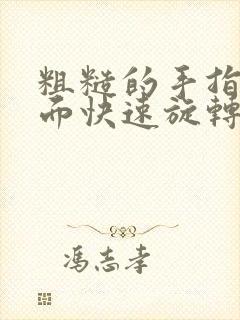 粗糙的手指
而快速旋轉
馮志孝